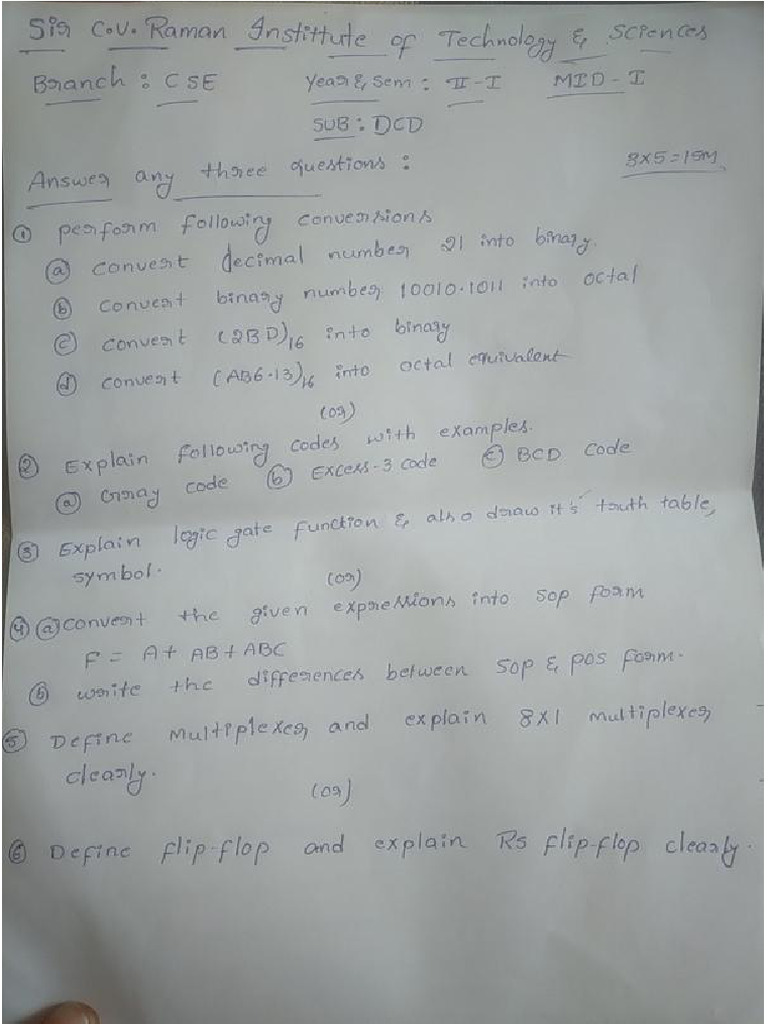 Sir C.V. Raman Institute of Technology & Sciences
Branch : CSE Year & Sem : II-I MID-I
SUB : DCD
Answer any three questions : 3x5=15M
① perform following conversions
ⓐ convert decimal number 21 into binary.
ⓑ convert binary number 10010.1011 into octal
ⓒ convert (2BD)16 into binary
ⓓ convert (AB6.13)16 into octal equivalent
(or)
② Explain following codes with examples.
ⓐ Gray code ⓑ Excess-3 code ⓒ BCD code
③ Explain logic gate function & also draw it's truth table,
symbol.
(or)
④ ⓐ convert the given expressions into sop form
F = A + AB + ABC
ⓑ write the differences between sop & pos form.
⑤ Define multiplexer and explain 8x1 multiplexer
clearly.
(or)
⑥ Define flip-flop and explain RS flip-flop clearly.